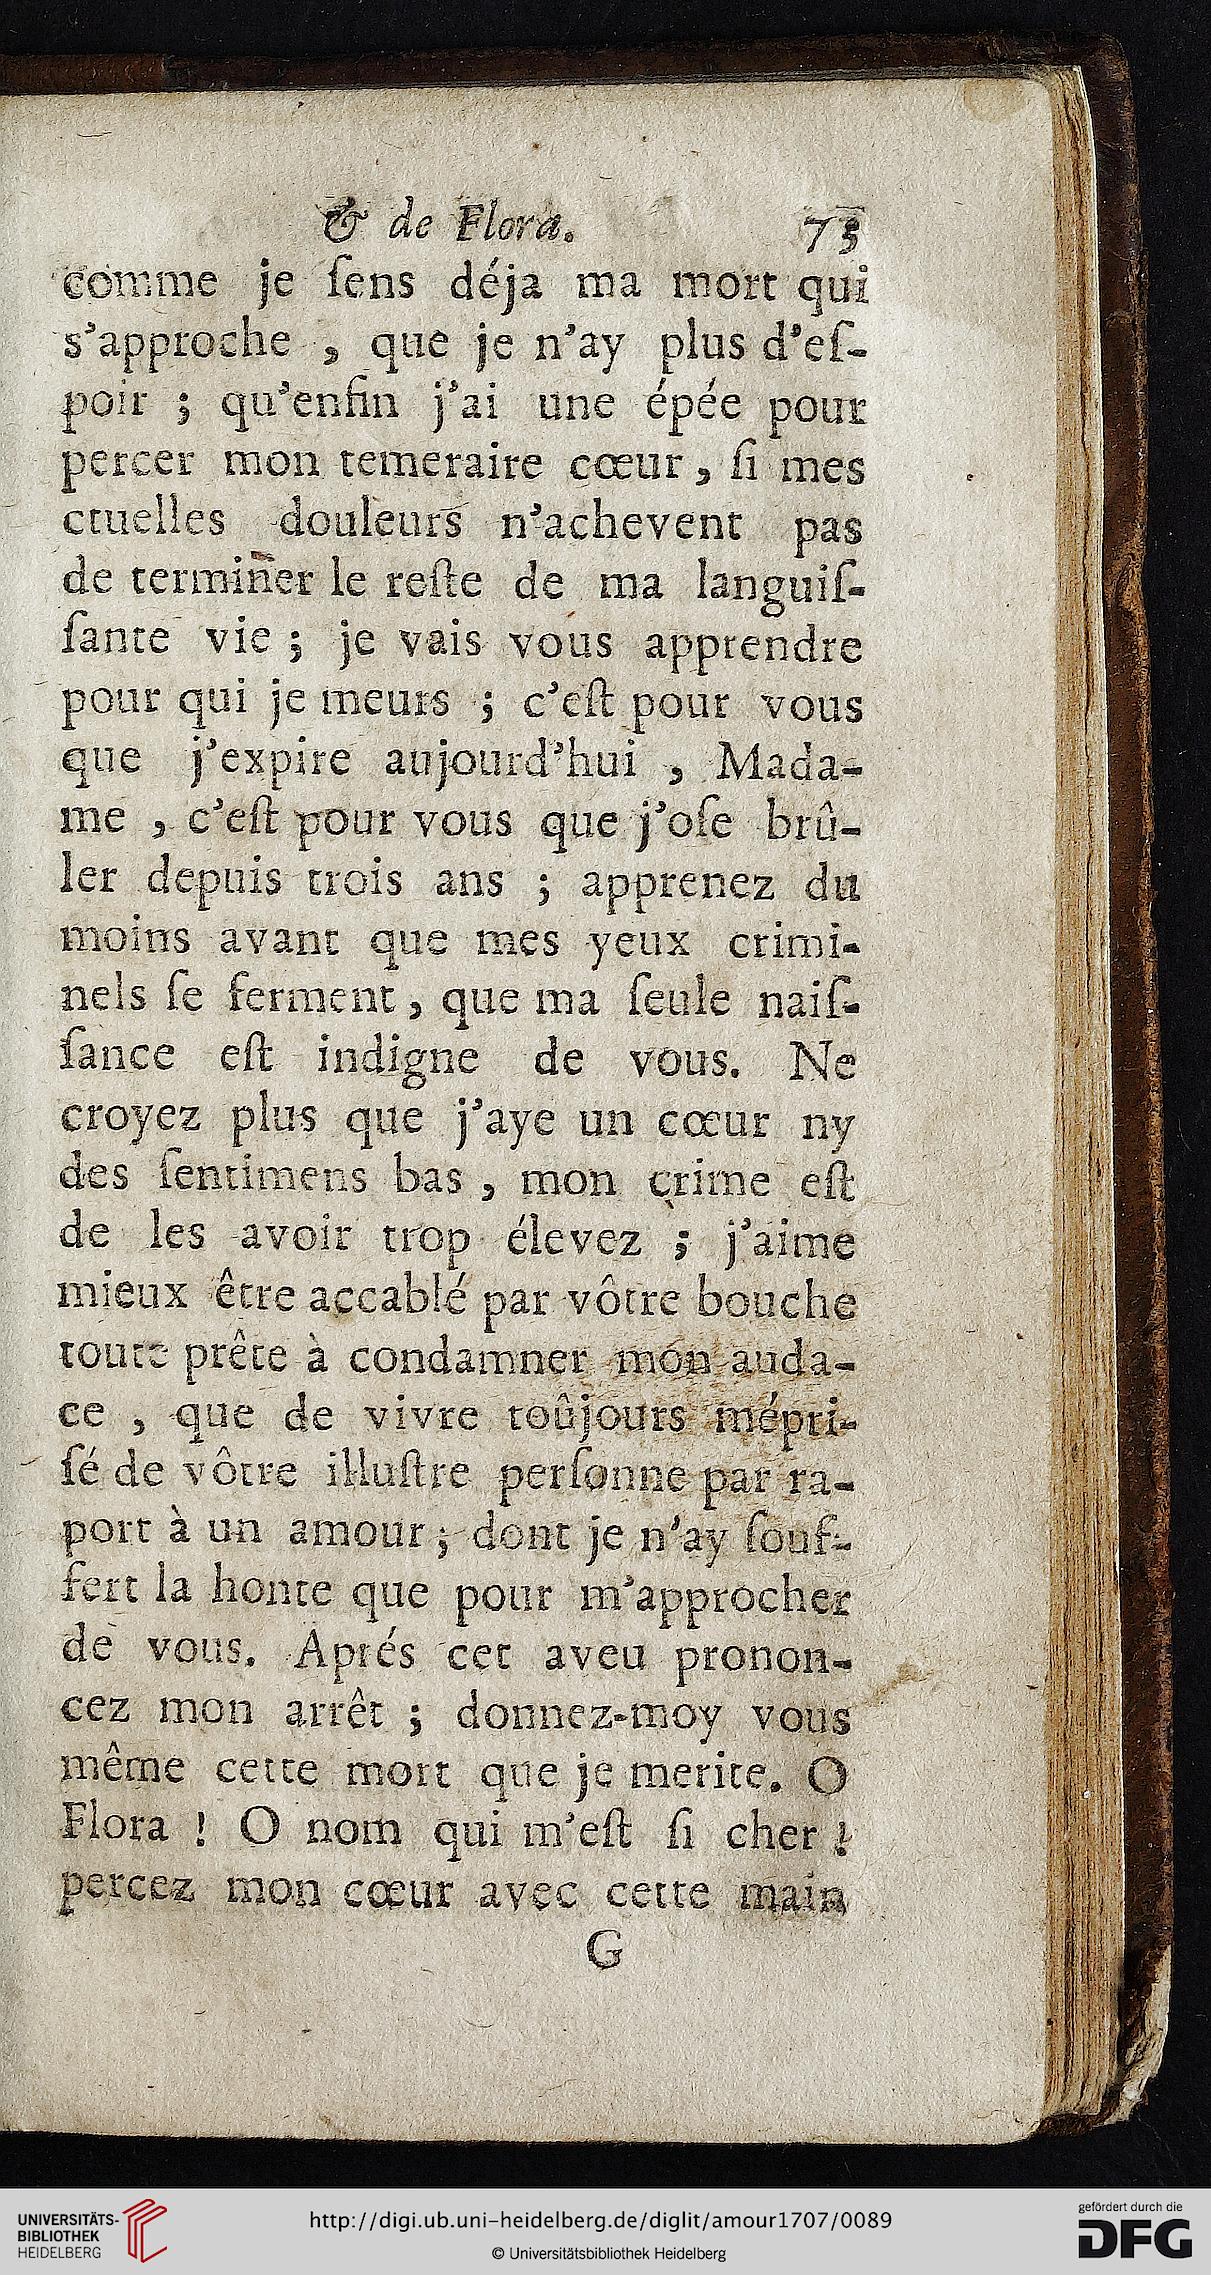 & de Flora. 73
comme je ſens déja ma mort qui
s'approche , que je n'ay plus d'eſ-
poir ; qu'enfin j'ai une épée pour
percer mon temeraire cœur, ſi mes
cruelles douleurs n'achevent pas
de terminer le reſte de ma languiſ-
ſante vie ; je vais vous apprendre
pour qui je meurs ; c'eſt pour vous
que j'expire aujourd'hui , Mada-
me , c'eſt pour vous que j'oſe brû-
ler depuis trois ans ; apprenez du
moins avant que mes yeux crimi-
nels ſe ferment, que ma ſeule naiſ-
ſance eſt indigne de vous. Ne
croyez plus que j'aye un cœur ny
des ſentimens bas , mon crime eſt
de les avoir trop élevez ; j'aime
mieux être accablé par vôtre bouche
toute prête à condamner mon auda-
ce , que de vivre toûjours mépri-
ſé de vôtre illuſtre perſonne par ra-
port à un amour ; dont je n'ay ſouf-
fert la honte que pour m'approcher
de vous. Aprés cet aveu pronon-
cez mon arrêt ; donnez-moy vous
même cette mort que je merite. O
Flora ! O nom qui m'eſt ſi cher !
percez mon cœur avec cette main
G
UNIVERSITÄTS-
BIBLIOTHEK
HEIDELBERG
http://digi.ub.uni-heidelberg.de/diglit/amour1707/0089
© Universitätsbibliothek Heidelberg
gefördert durch die
DFG